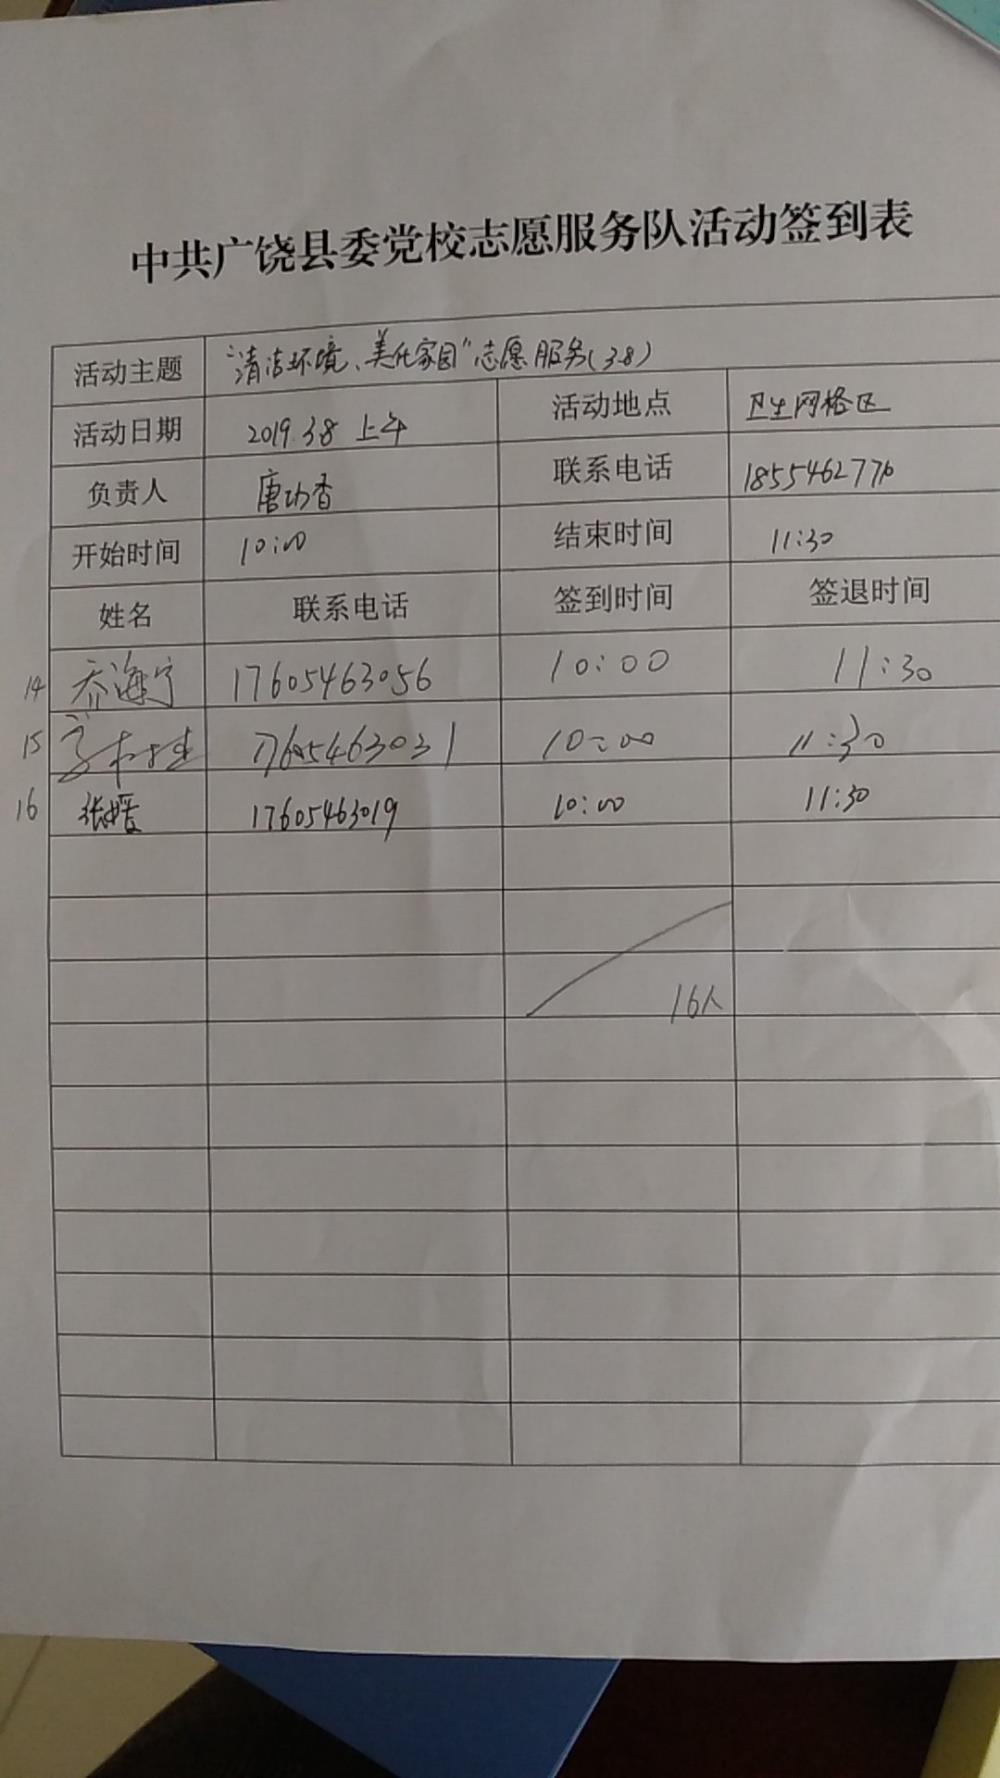 中共广饶县委党校志愿服务队活动签到表
活动主题 "清洁环境、美化家园"志愿服务(3.8)
活动日期 2019.3.8 上午 活动地点 卫生网格区
负责人 唐功香 联系电话
开始时间 10:00 结束时间 11:30
姓名 联系电话 签到时间 签退时间
14 乔海宁 17605463056 10:00 11:30
15 17605463031 10:00 11:30
16 张媛 17605463019 10:00 11:30
16人